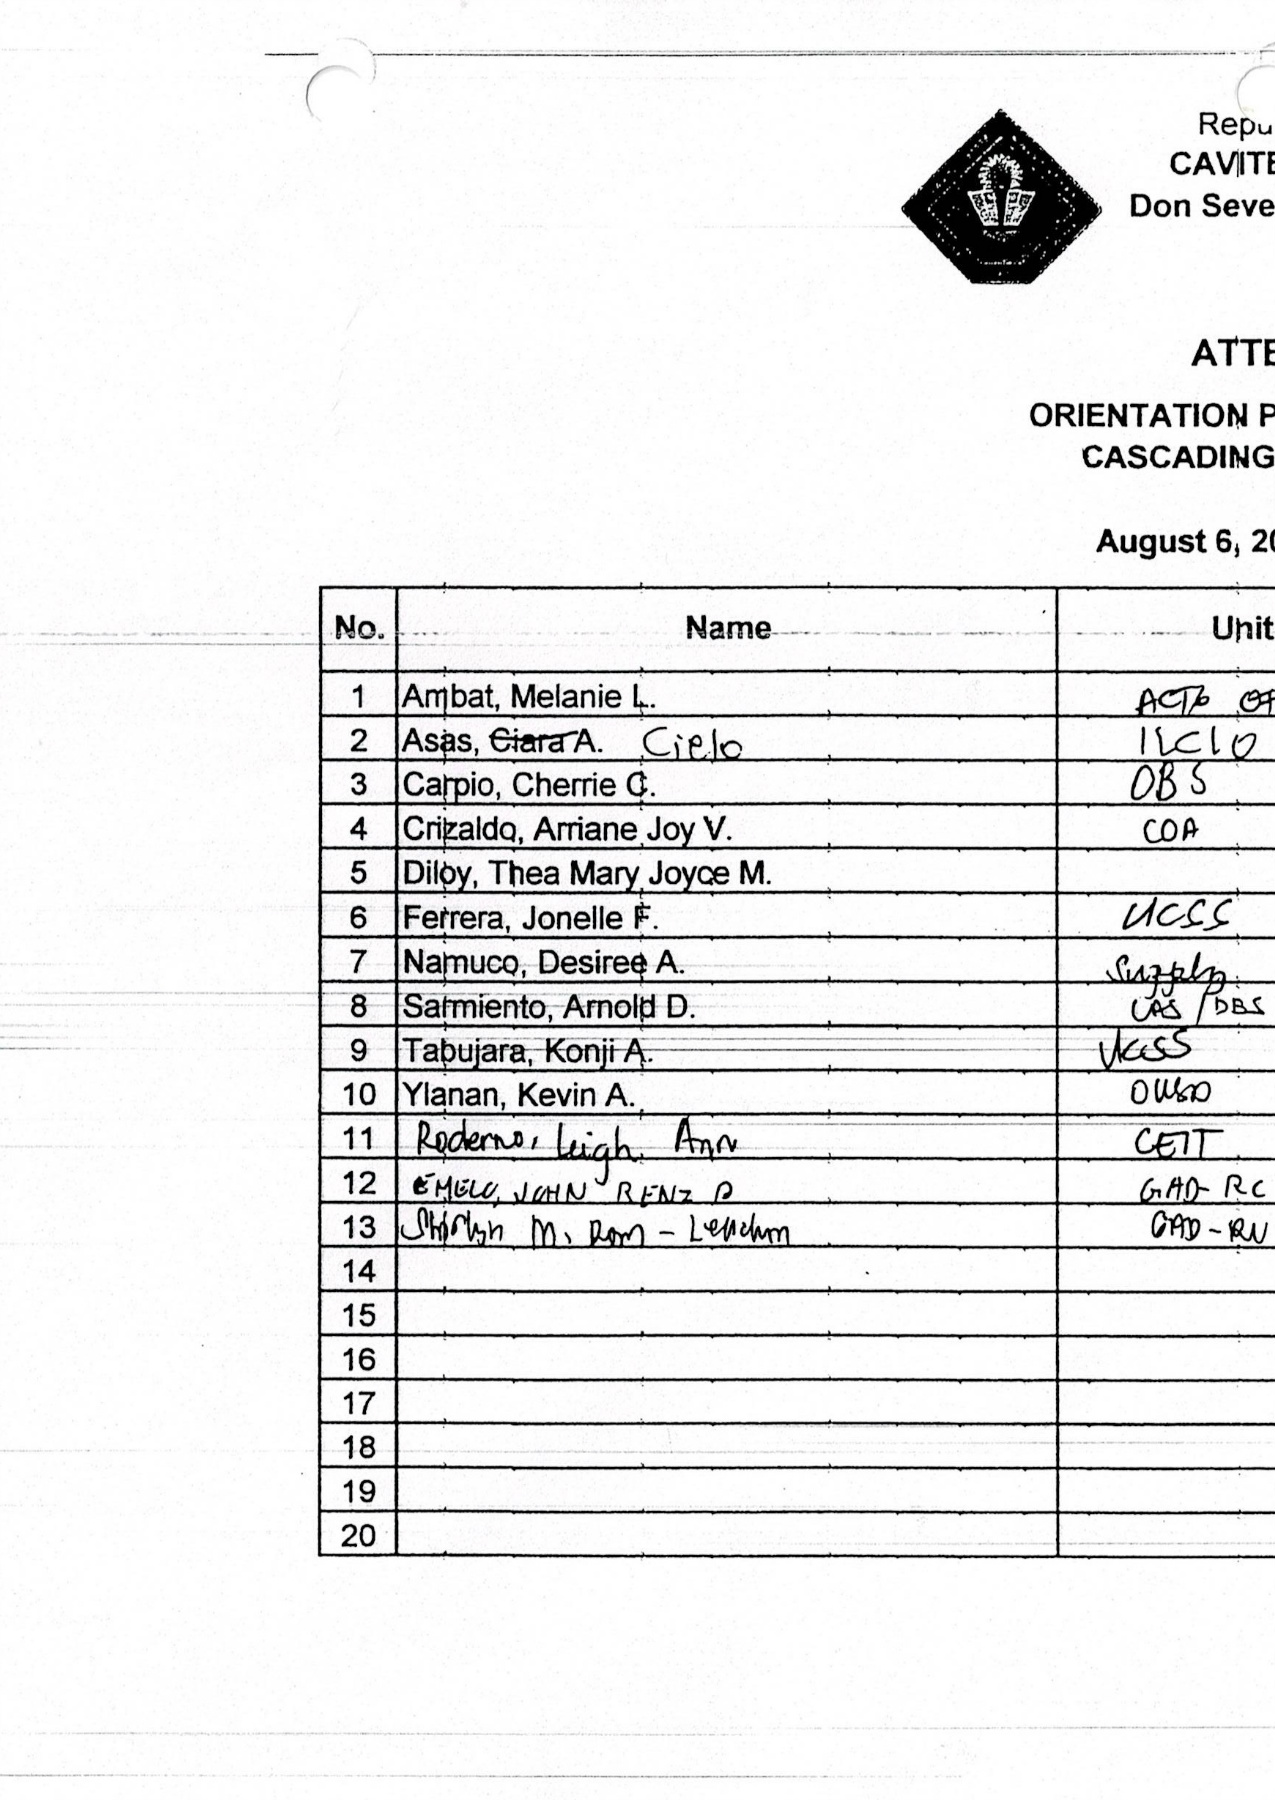 Repu
CAVITE
Don Seve
ATTE
ORIENTATION P
CASCADING
August 6, 20
No. Name Unit
1 Ambat, Melanie L.
2 Asas, Ciara A. Cielo
3 Carpio, Cherrie C. OBS
4 Crizaldo, Arriane Joy V. COA
5 Diloy, Thea Mary Joyce M.
6 Ferrera, Jonelle F. UCSS
7 Namuco, Desiree A. Supply
8 Sarmiento, Arnold D. CAS /DBS
9 Tabujara, Konji A. UCSS
10 Ylanan, Kevin A.
11 Roderno, Leigh Ann CEIT
12 EMELO, JOHN RENZ D GAD-RC
13 M. Rom - GAD-RU
14
15
16
17
18
19
20